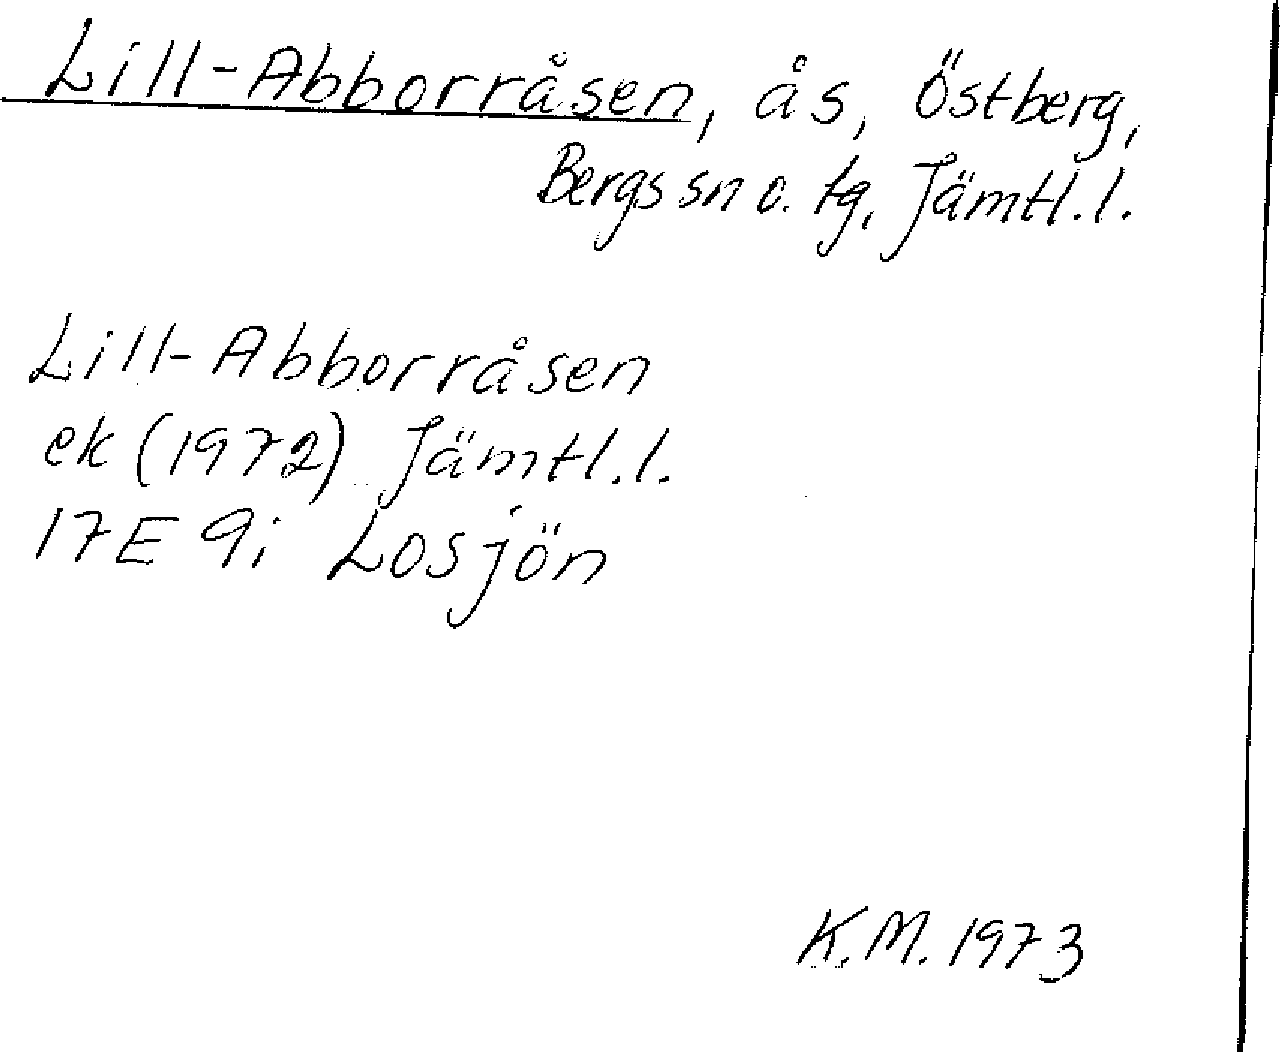 Lill-Abborråsen, ås, Östberg,
Bergs sn o. tg, Jämtl.l.
Lill-Abborråsen
ek (1972) Jämtl.l.
17E 9i Losjön
K.M. 1973